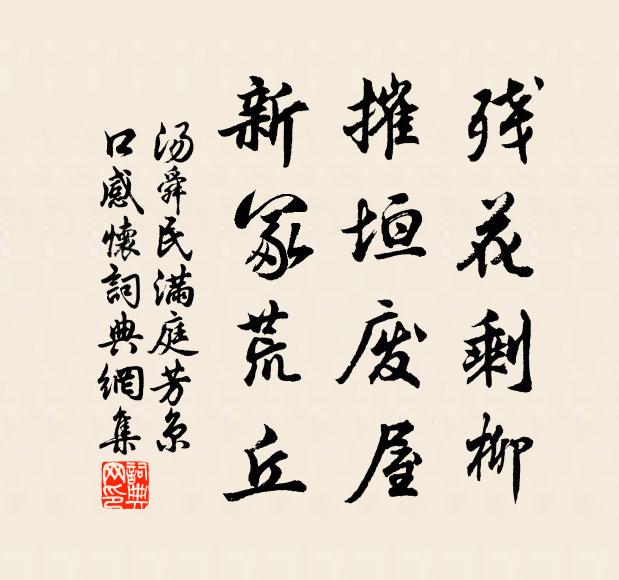 残花剩柳
摧垣废屋
新冢荒丘
汤舜民满庭芳京
口感懷詞典網集
詞典网印